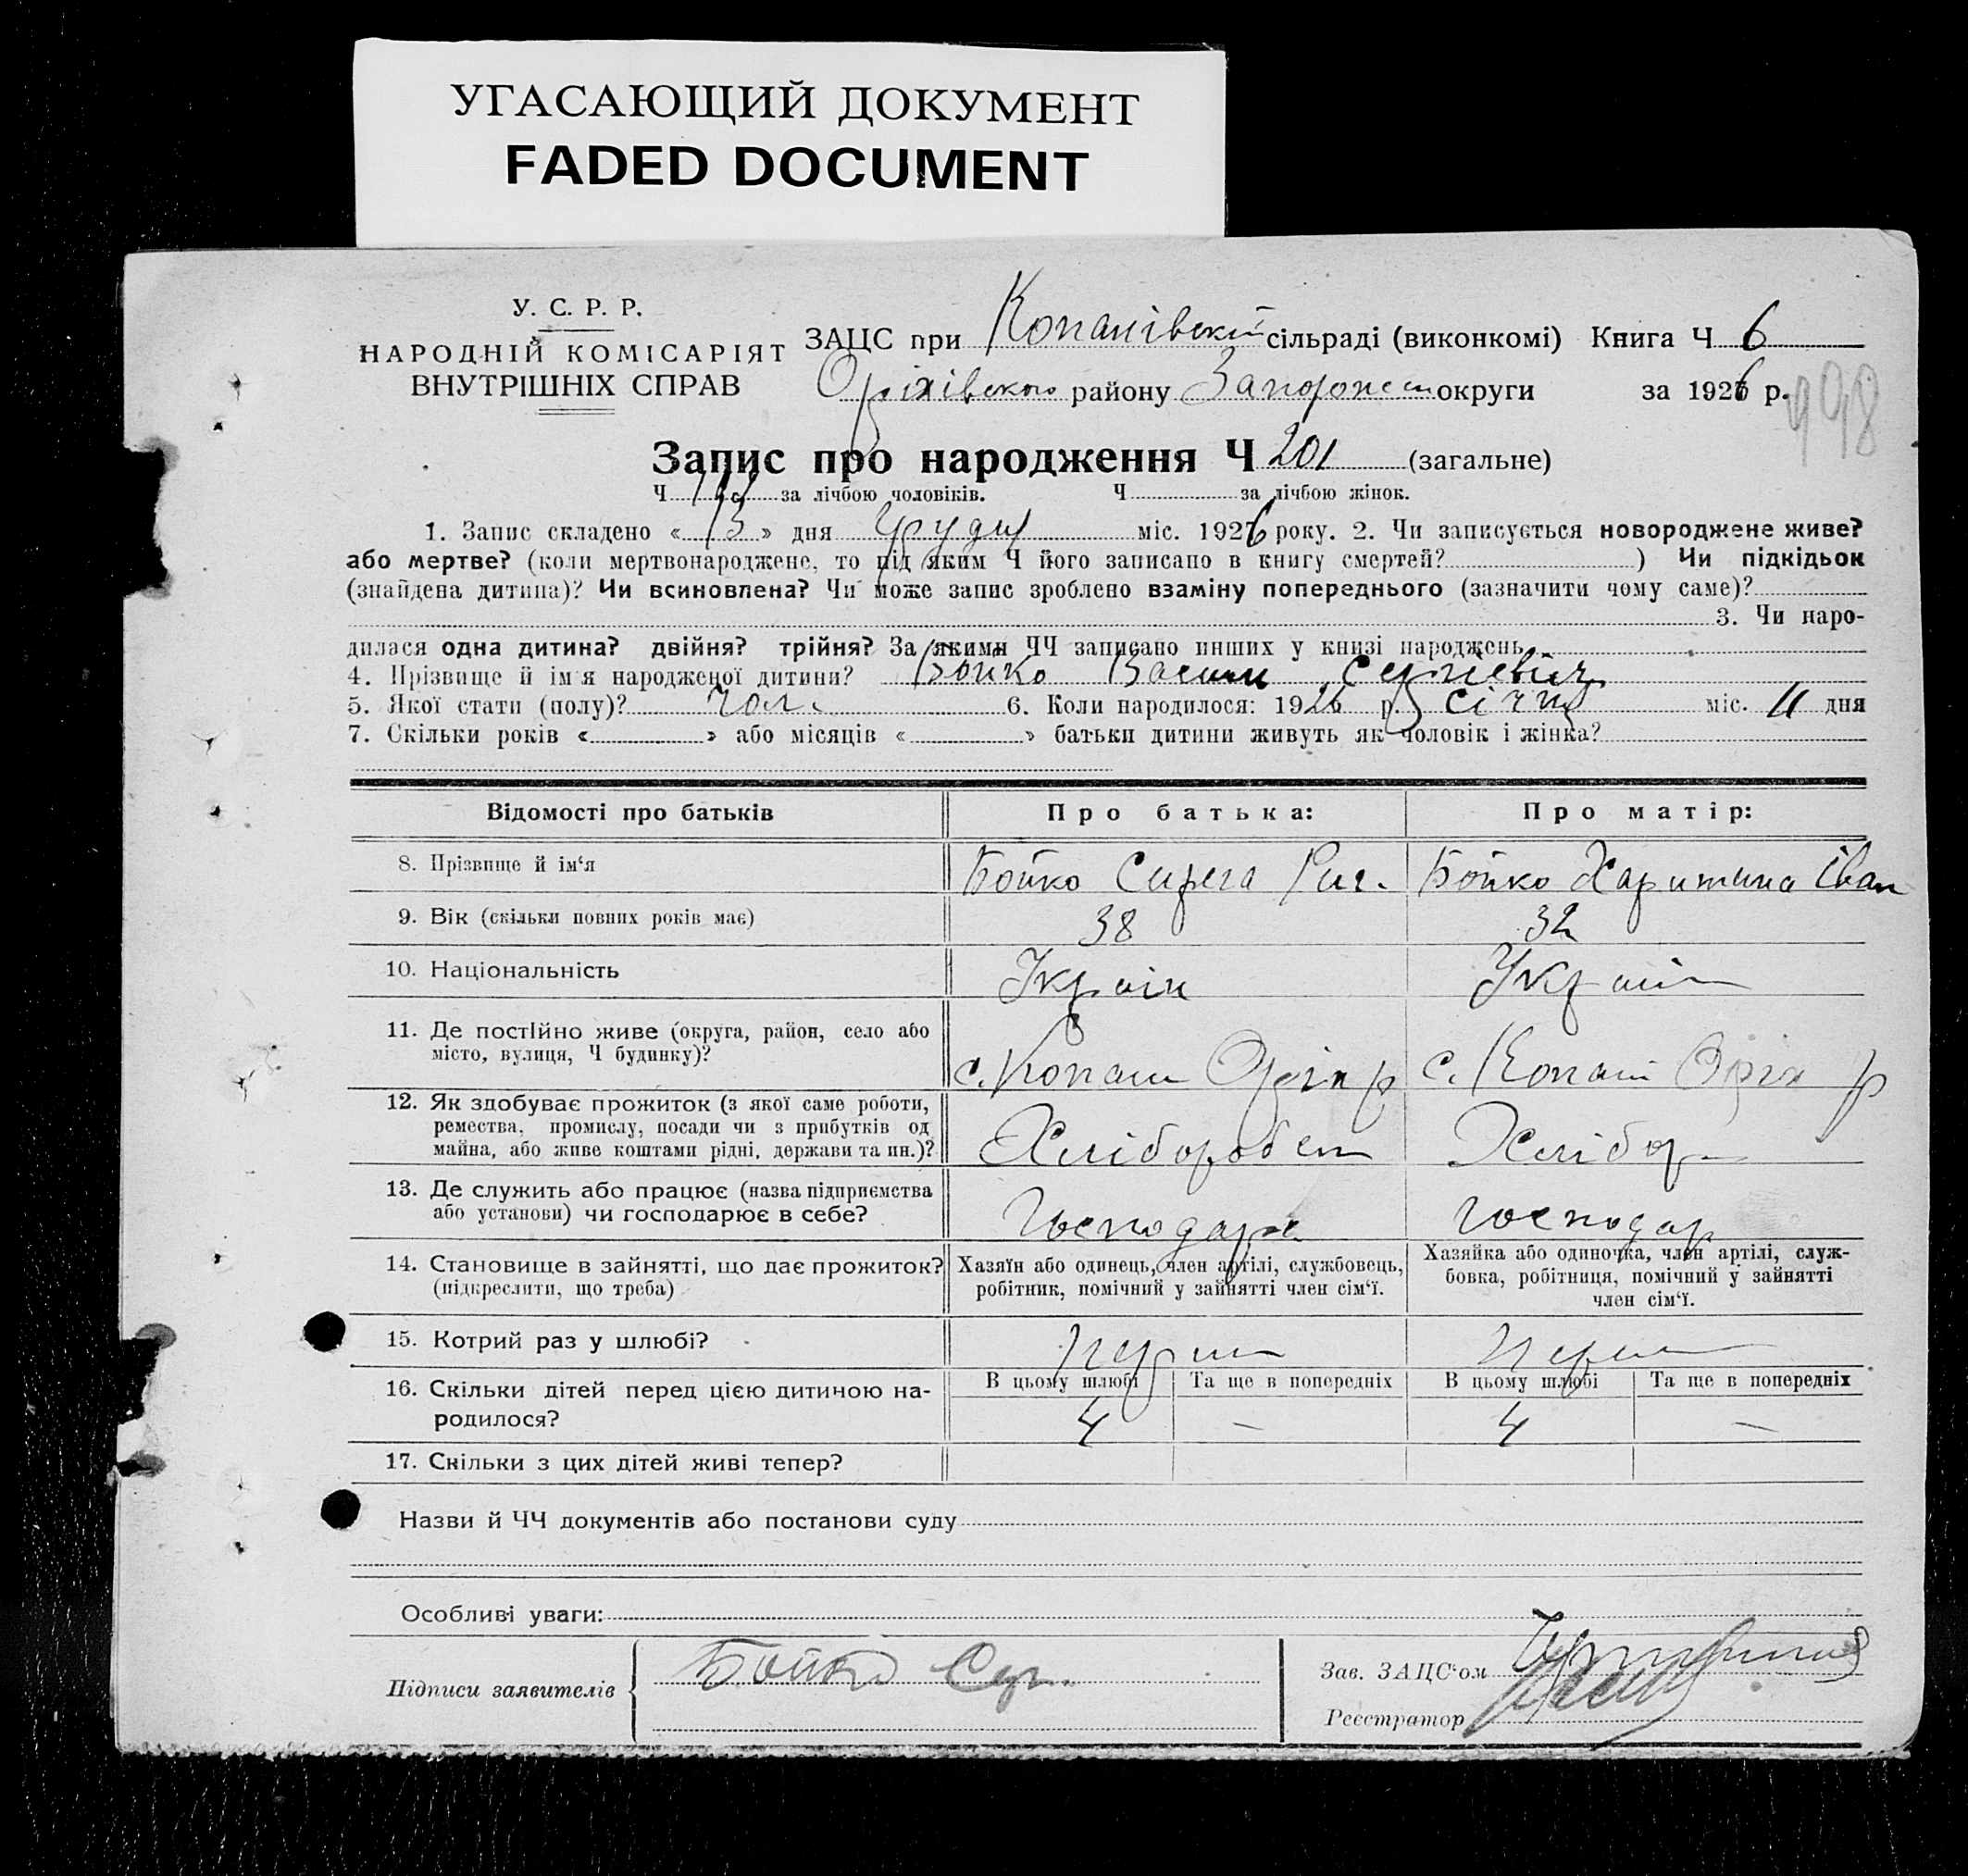 УГАСАЮЩИЙ ДОКУМЕНТ
FADED DOCUMENT
У. С. Р. Р.
НАРОДНІЙ КОМІСАРІЯТ
ВНУТРІШНІХ СПРАВ
ЗАЦС при Копанівскій сільраді (виконкомі) Книга Ч 6
Оріхівского району Запорожск округи за 1926 р.
998
Запис про народження Ч 201 (загальне)
Ч за лічбою чоловіків. Ч за лічбою жінок.
1. Запис складено « 13 » дня Грудня міс. 1926 року. 2. Чи записується новороджене живе?
або мертве? (коли мертвонароджене, то під яким Ч його записано в книгу смертей? ) Чи підкідьок
(знайдена дитина)? Чи всиновлена? Чи може запис зроблено взаміну попереднього (зазначити чому саме)?
3. Чи наро-
дилася одна дитина? двійня? трійня? За якими ЧЧ записано инших у книзі народжень
4. Прізвище й ім'я народженої дитини? Бойко Василь Сергієвич
5. Якої стати (полу)? чол. 6. Коли народилося: 1926 р. січня міс. 11 дня
7. Скільки років « » або місяців « » батьки дитини живуть як чоловік і жінка?
Відомості про батьків Про батька: Про матір:
8. Прізвище й ім‘я Бойко Сирега Риг. Бойко Харитина Іван
9. Вік (скільки повних років має) 38 32
10. Національність Україн Україн
11. Де постійно живе (округа, район, село або
місто, вулиця, Ч будинку)?
с. Копани Оріх р с. Копани Оріх р
12. Як здобуває прожиток (з якої саме роботи,
ремества, промислу, посади чи з прибутків од
майна, або живе коштами рідні, держави та ин.)?
Хлібороб Хлібор
13. Де служить або працює (назва підприємства
або установи) чи господарює в себе?
Господарь господар
14. Становище в зайнятті, що дає прожиток?
(підкреслити, що треба)
Хазяїн або одинець, член артілі, службовець,
робітник, помічний у зайнятті член сім‘ї.
Хазяйка або одиночка, член артілі, служ-
бовка, робітниця, помічний у зайнятті
член сім‘ї.
15. Котрий раз у шлюбі? перши перши
16. Скільки дітей перед цією дитиною на-
родилося?
В цьому шлюбі Та ще в попередніх В цьому шлюбі Та ще в попередніх
4 — 4 —
17. Скільки з цих дітей живі тепер?
Назви й ЧЧ документів або постанови суду
Особливі уваги:
Підписи заявителів Бойко Сер.
Зав. ЗАЦС‘ом
Реєстратор